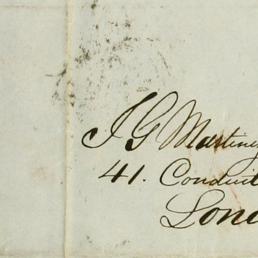 J G Martin
41. Conduit
Lon